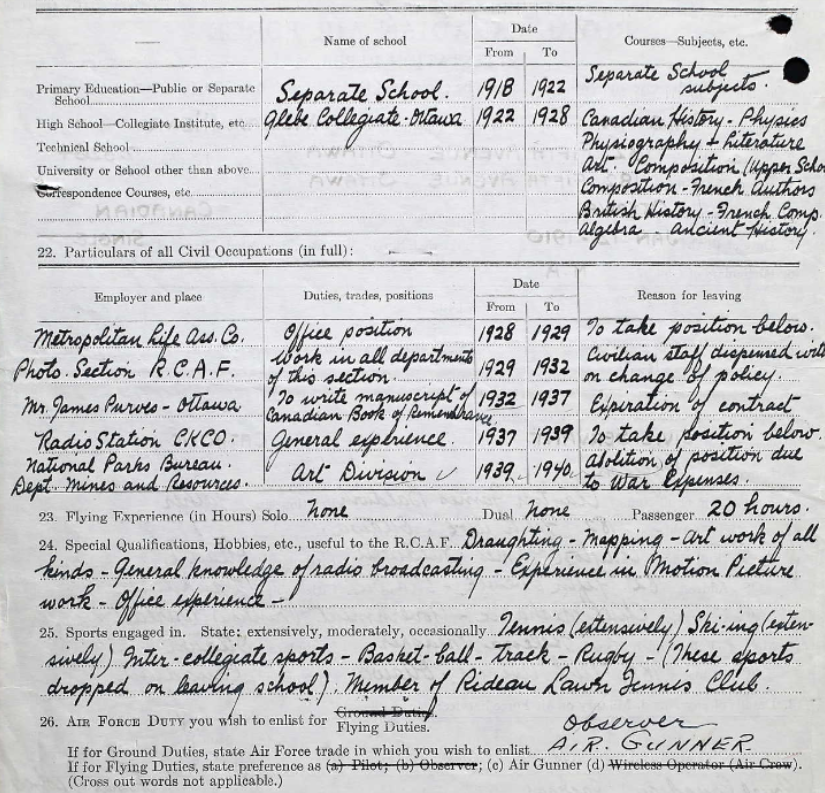 Name of school Date Courses—Subjects, etc.
From To
Primary Education—Public or Separate School Separate School. 1918 1922 Separate School subjects.
High School—Collegiate Institute, etc. Glebe Collegiate-Ottawa 1922 1928 Canadian History - Physics
Technical School Physiography + Literature
University or School other than above Art - Composition (Upper Scho
Correspondence Courses, etc. Composition - French Authors
British History - French Comp.
Algebra - Ancient History.
22. Particulars of all Civil Occupations (in full):
Employer and place Duties, trades, positions Date Reason for leaving
From To
Metropolitan Life Ass. Co. Office position 1928 1929 To take position below.
Photo. Section R.C.A.F. Work in all departments of this section. 1929 1932 Civilian staff dispensed with on change of policy.
Mr. James Purves - Ottawa To write manuscript of Canadian Book of Remembrance 1932 1937 Expiration of contract
Radio Station CKCO. General experience. 1937 1939 To take position below.
National Parks Bureau. Dept. Mines and Resources. Art Division 1939 1940 Abolition of position due to War Expenses.
23. Flying Experience (in Hours) Solo None Dual None Passenger 20 hours.
24. Special Qualifications, Hobbies, etc., useful to the R.C.A.F. Draughting - Mapping - Art work of all
kinds - General knowledge of radio broadcasting - Experience in Motion Picture
work - Office experience -
25. Sports engaged in. State: extensively, moderately, occasionally. Tennis (extensively) Ski-ing (exten-
sively) Inter-collegiate sports - Basket-ball - track - Rugby - (These sports
dropped on leaving school). Member of Rideau Lawn Tennis Club.
26. AIR FORCE DUTY you wish to enlist for Ground Duties. Flying Duties.
Observer
If for Ground Duties, state Air Force trade in which you wish to enlist AIR. GUNNER
If for Flying Duties, state preference as (a) Pilot; (b) Observer; (c) Air Gunner (d) Wireless Operator (Air Crew).
(Cross out words not applicable.)